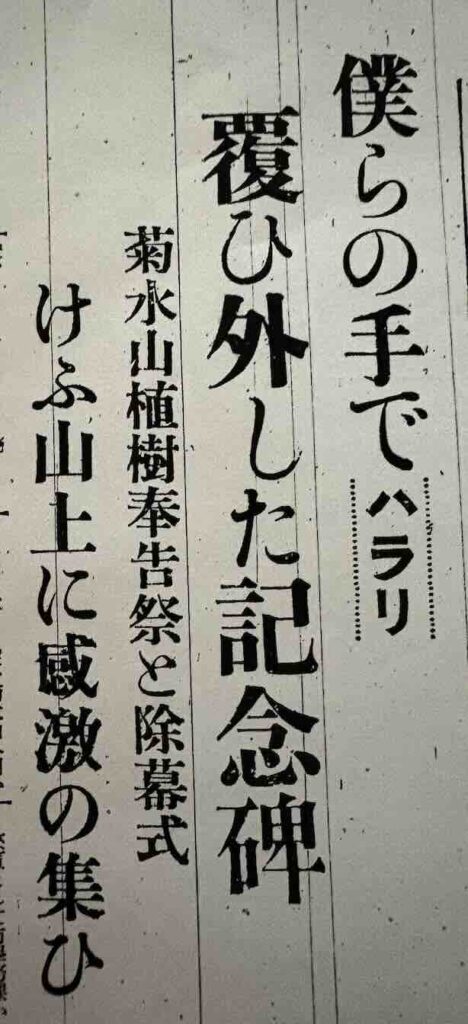 僕らの手でハラリ
覆ひ外した記念碑
菊水山植樹奉告祭と除幕式
けふ山上に感激の集ひ